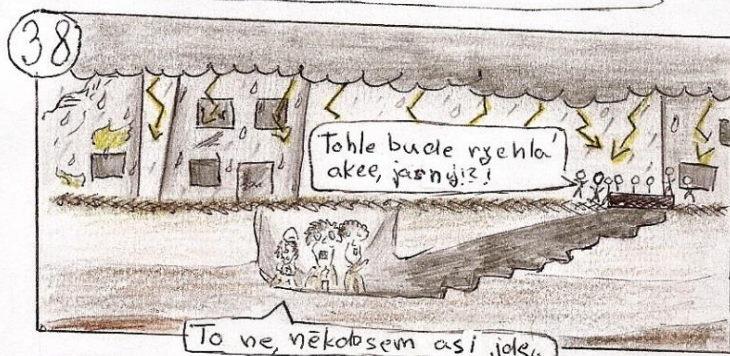 38
Tohle bude rychlá
akce, jasný!?!
To ne, někdo sem asi jde..